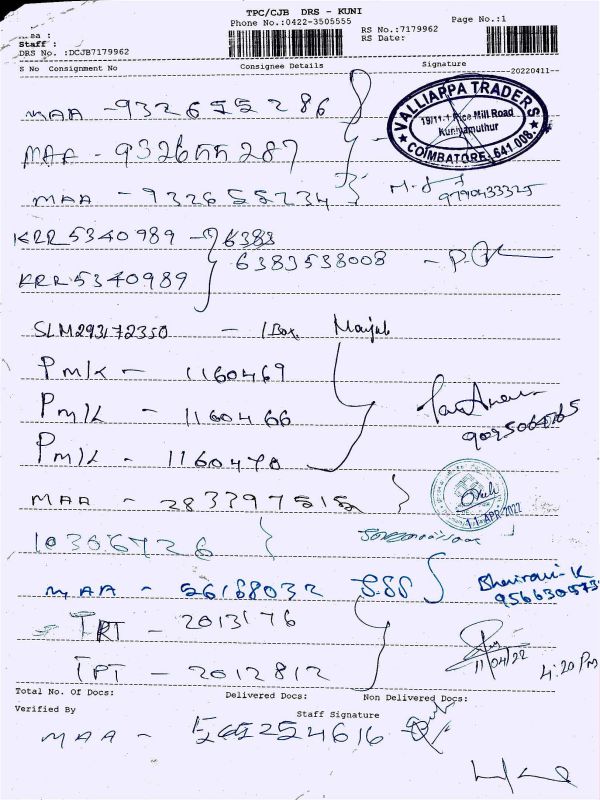 TPC/CJB DRS - KUNI
Phone No.:0422-3505555 Page No.:1
RS No.:7179962
Staff : RS Date:
DRS No. :DCJB7179962
S No Consignment No Consignee Details Signature
20220411
MAA - 932655286
VALLIAPPA TRADERS
19/11-1 Rice Mill Road
Kuniyamuthur
COIMBATORE 641 008.
MAA - 932655287
MAA - 932655234
9790433325
KRR 5340989 - 6383
6383538008 - P.
KRR 5340989
SLM293172350 - 1 Box
PMK - 1160469
PMK - 1160466
9025064565
PMK - 1160470
MAA - 283397515
11 APR 2022
10366726
MAA - 56188032
Bhairavi-K
TRT - 2013176
11/04/22
4:20 PM
TPT - 2012812
Total No. of Docs: Delivered Docs: Non Delivered Docs:
Verified By Staff Signature
MAA - 565254616